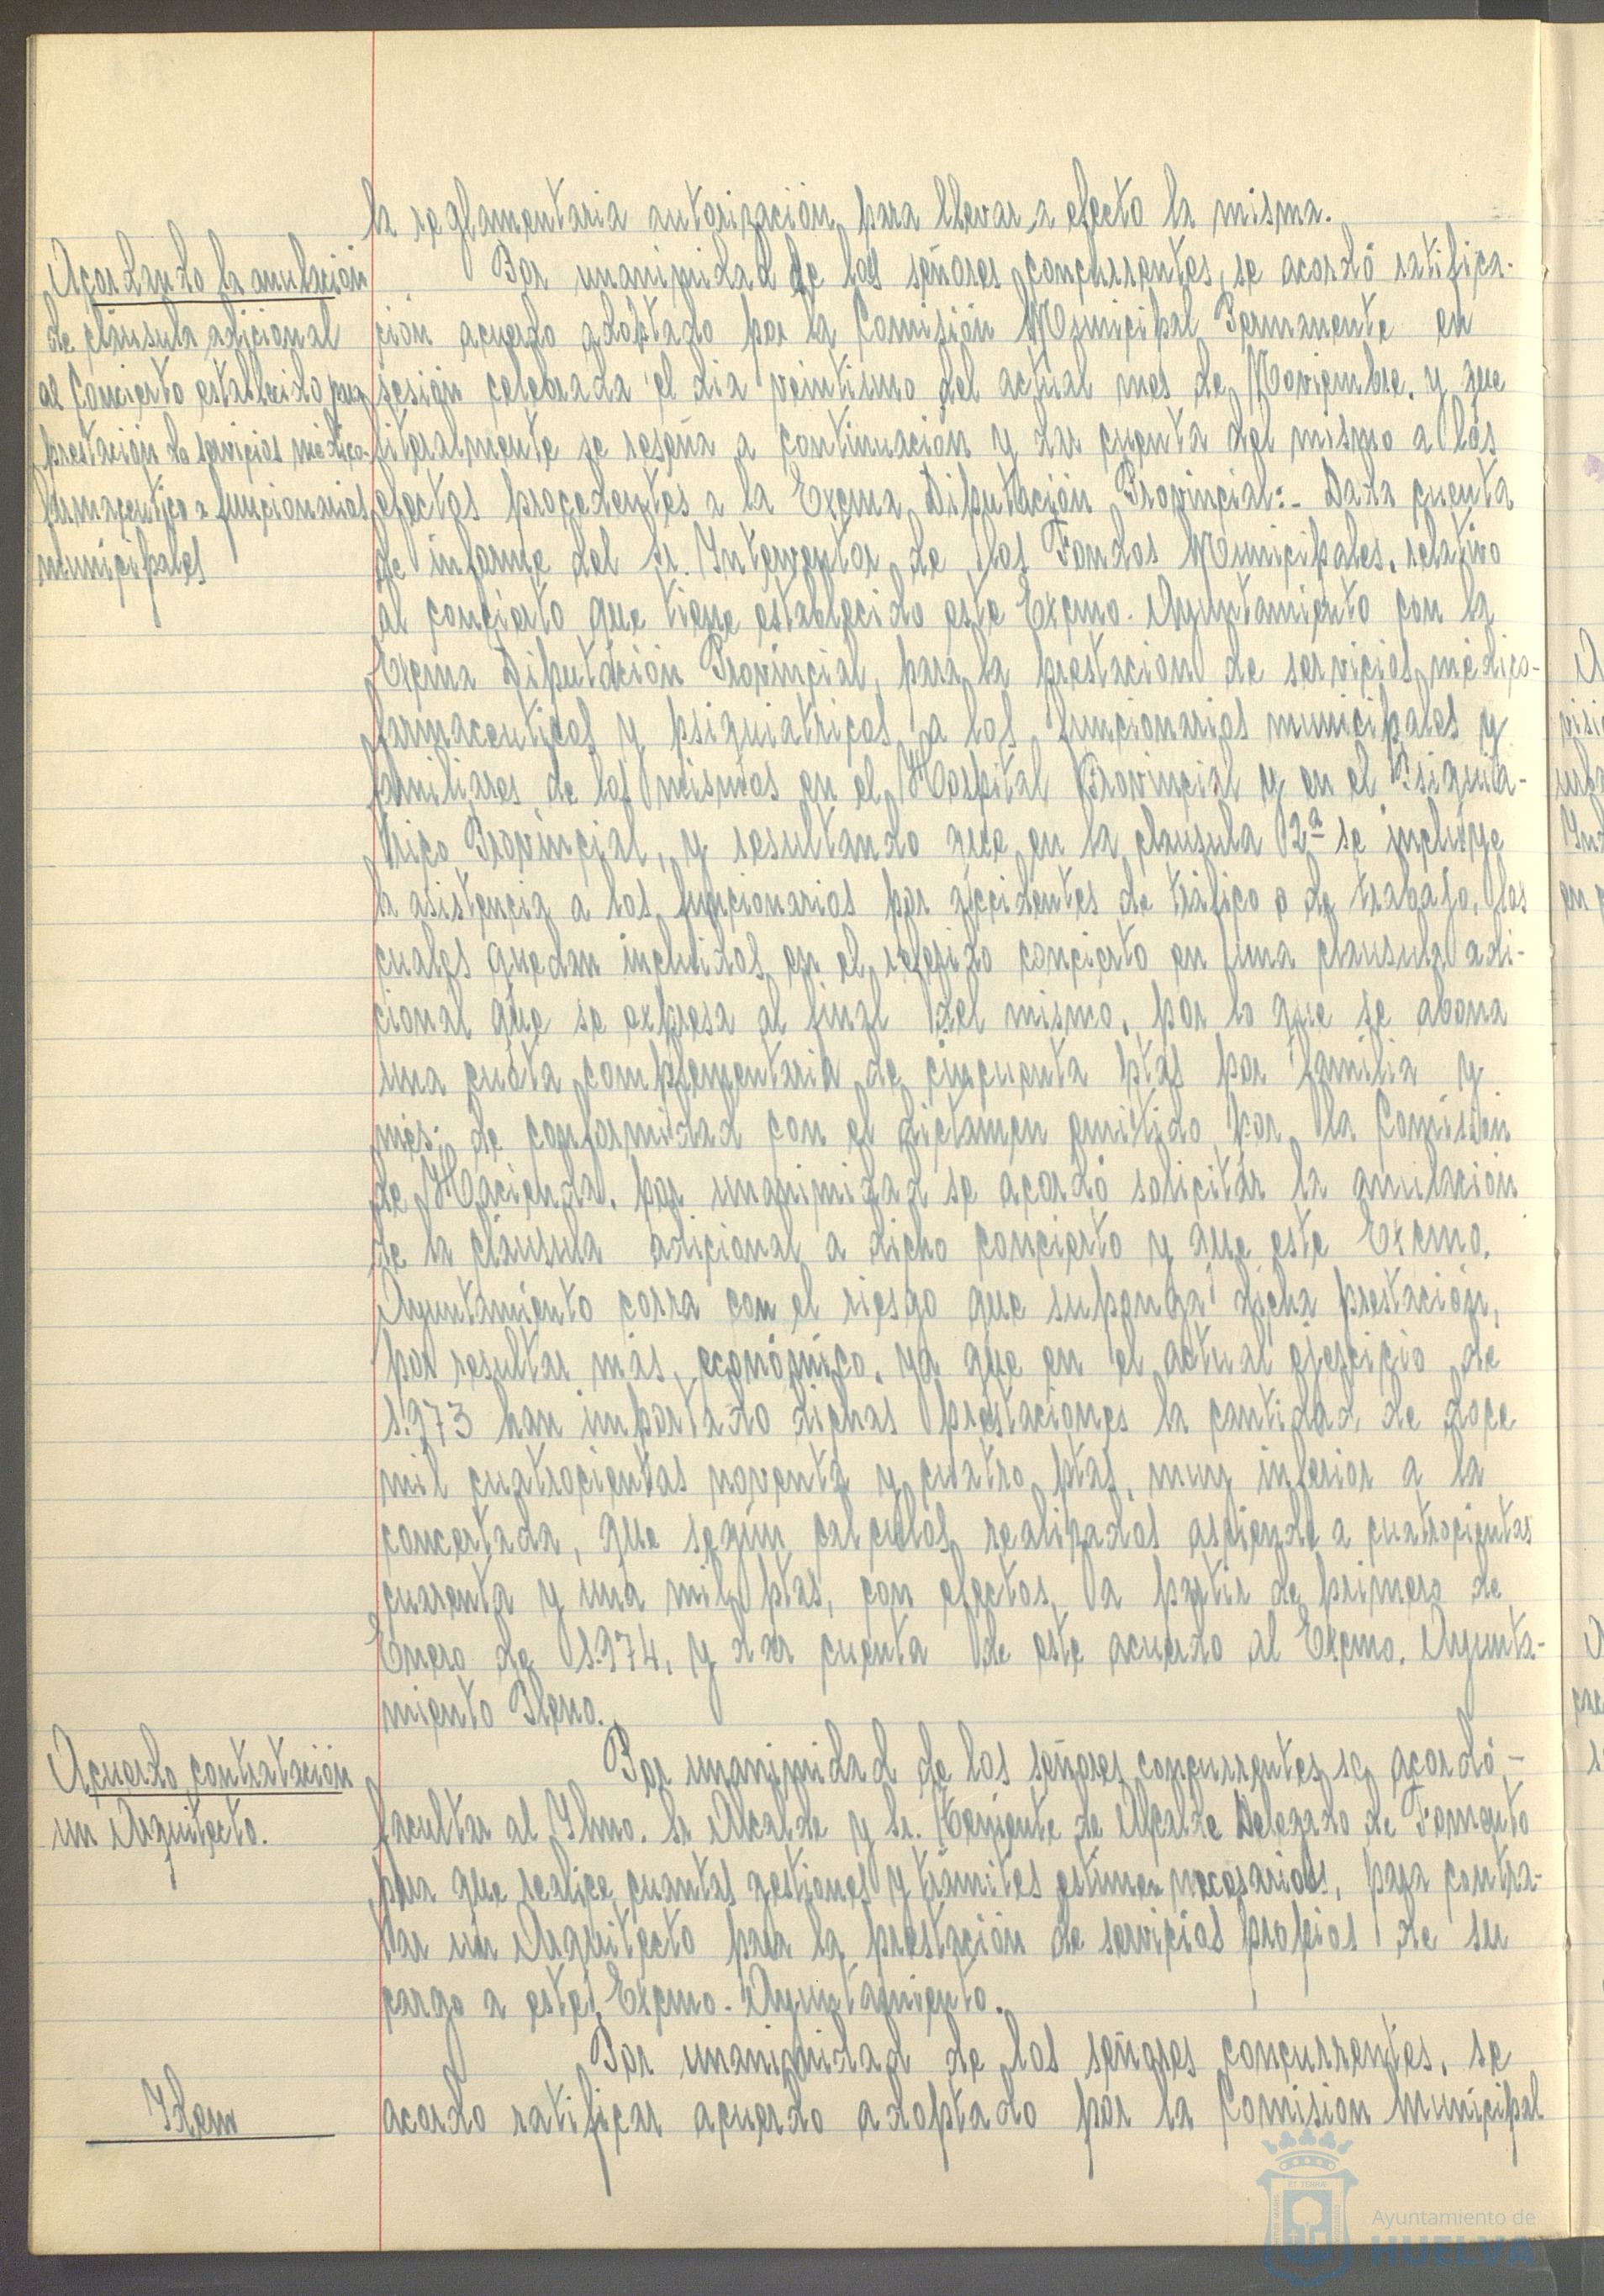 la reglamentaria autorización para llevar a efecto la misma.
Acordando la anulación
de cláusula adicional
al Concierto establecido para
prestación de servicios médico
farmaceutico a funcionarios
municipales
Por unanimidad de los señores concurrentes, se acordó ratifica-
ción acuerdo adoptado por la Comisión Municipal Permanente en
sesión celebrada el dia veintiuno del actual mes de Noviembre, y que
literalmente se reseña a continuación y dar cuenta del mismo a los
efectos procedentes a la Excma Diputación Provincial:- Dada cuenta
de informe del sr. Interventor de los Fondos Municipales, relativo
al concierto que tiene establecido este Excmo. Ayuntamiento con la
Excma Diputación Provincial, para la prestacion de servicios médico-
farmaceuticos y psiquiatricos a los funcionarios municipales y
familiares de los mismos en el Hospital Provincial y en el Psiquia-
trico Provincial, y resultando que en la clausula 2ª se incluye
la asistencia a los funcionarios por accidentes de tráfico o de trabajo, los
cuales quedan incluidos en el referido concierto en una clausula adi-
cional que se expresa al final del mismo, por lo que se abona
una cuota complementaria de cincuenta ptas por familia y
mes; de conformidad con el dictamen emitido por la Comisión
de Hacienda, por unanimidad se acordó solicitar la anulación
de la cláusula adicional a dicho concierto y que este Excmo.
Ayuntamiento corra con el riesgo que suponga dicha prestación,
por resultar más económico, ya que en el actual ejercicio de
1.973 han importado dichas prestaciones la cantidad de doce
mil cuatrocientas noventa y cuatro ptas, muy inferior a la
concertada, que según calculos realizados asciende a cuatrocientas
cuarenta y una mil ptas, con efectos a partir de primero de
Enero de 1.974, y dar cuenta de este acuerdo al Excmo. Ayunta-
miento Pleno.
Acuerdo contratación
un Arquitecto.
Por unanimidad de los señores concurrentes se acordó-
facultar al Ilmo. Sr Alcalde y Sr. Teniente de Alcalde Delegado de Fomento
para que realice cuantas gestiones y trámites estimen necesarios, para contra-
tar un Arquitecto para la prestación de servicios propios de su
cargo a este Excmo. Ayuntamiento.
Idem
Por unanimidad de los señores concurrentes, se
acordo ratificar acuerdo adoptado por la Comision Municipal
Ayuntamiento de
HUELVA